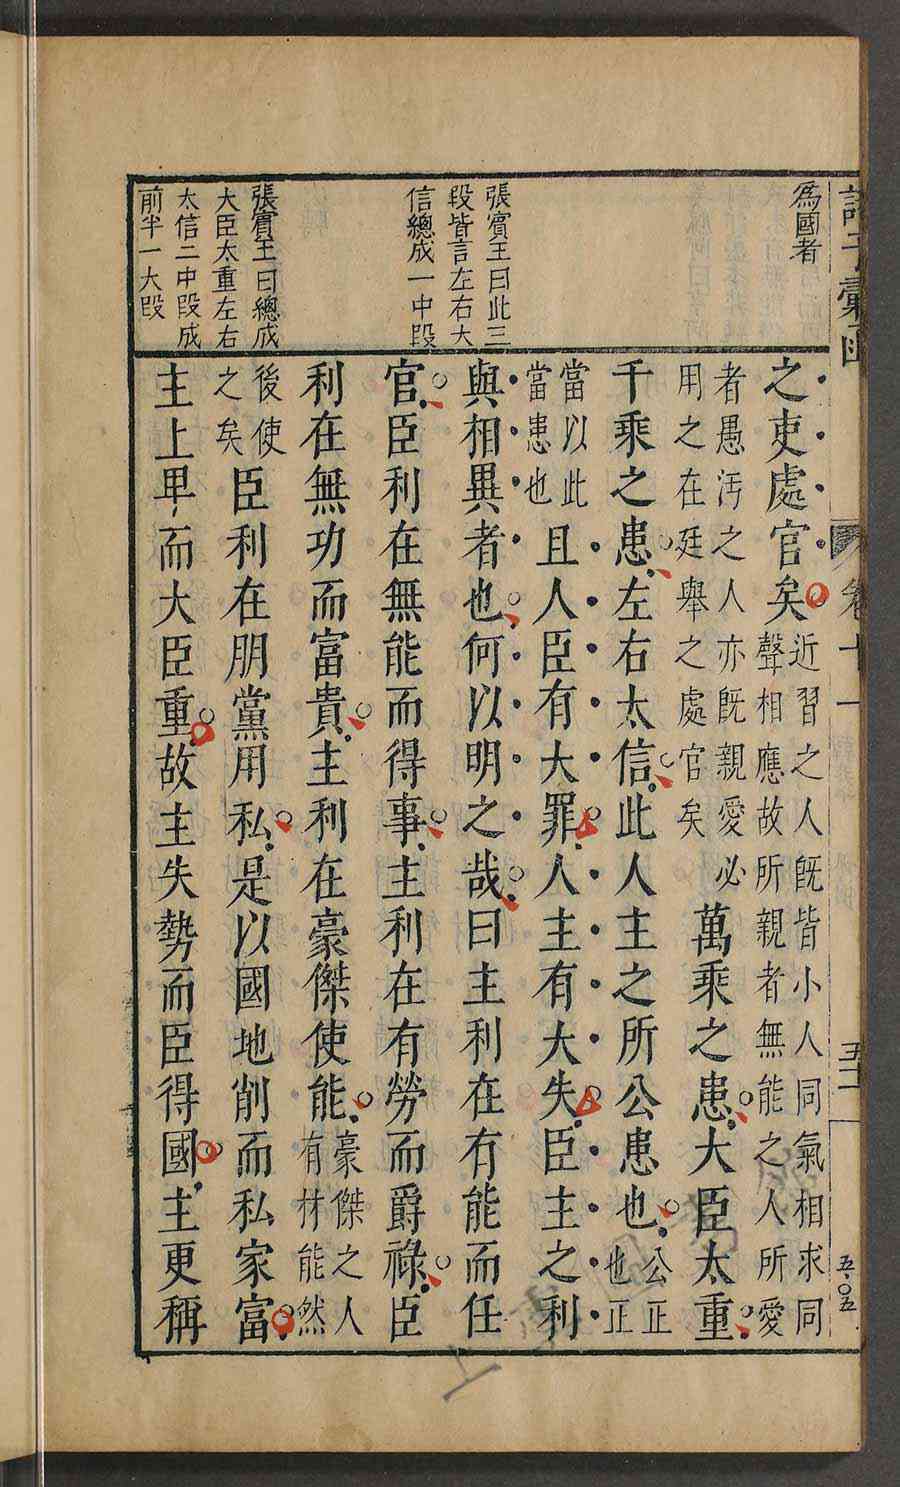 諸子彙函
卷十一
五〇五
為國者
張賓王曰此三
段皆言左右大
信總成一中段
張賓王曰總成
大臣太重左右
太信二中段成
前半一大段
之吏處官矣近習之人既皆小人同氣相求同
聲相應故所親者無能之人所愛
者愚汚之人亦既親愛必
用之在廷舉之處官矣萬乘之患大臣太重
千乘之患左右太信此人主之所公患也公正
也正
當以此
當患也且人臣有大罪人主有大失臣主之利
與相異者也何以明之哉曰主利在有能而任
官臣利在無能而得事主利在有勞而爵祿臣
利在無功而富貴主利在豪傑使能豪傑之人
有材能然
後使
之矣臣利在朋黨用私是以國地削而私家富
主上卑而大臣重故主失勢而臣得國主更稱